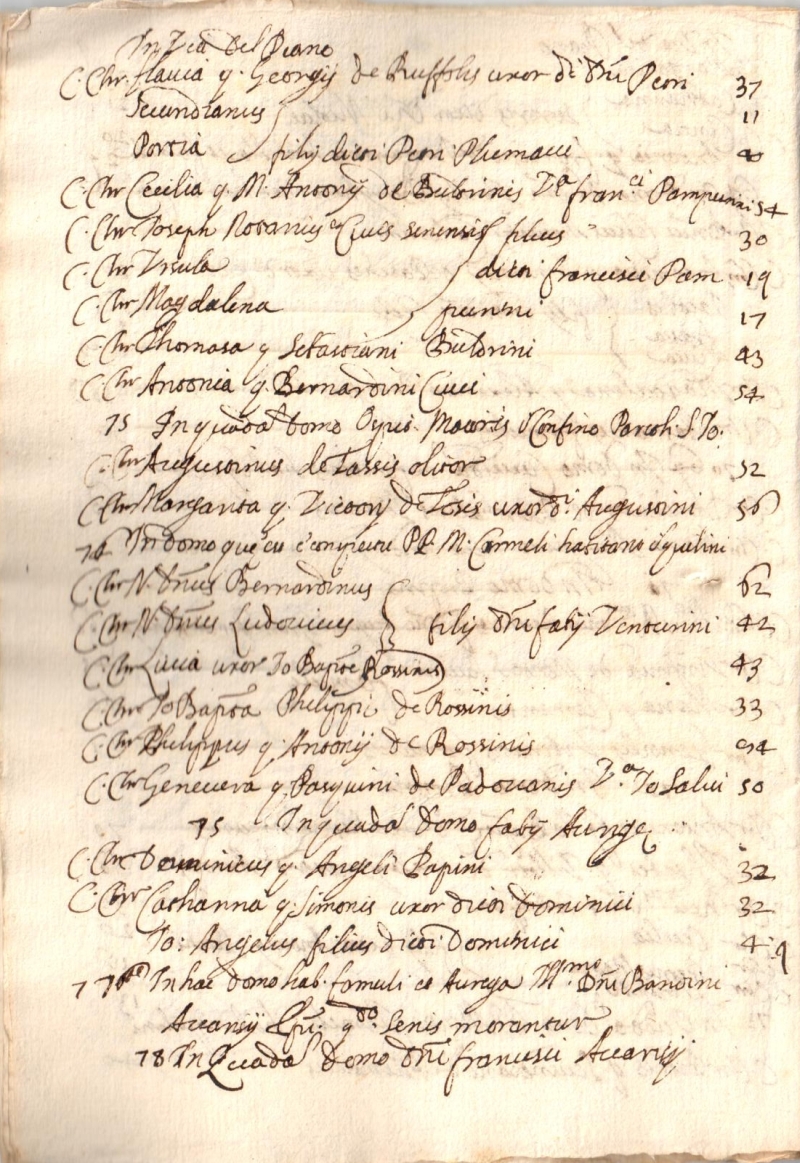 In Via del Piano
C. Chr. Flavia q. Georgij de Ruffolis uxor di Dni Petri 37
Secundianus 11
Portia filij dicti Petri 
C. Chr Cecilia q. M. Antonij de Butorinis Va. Fran.ci Pampurini 54
C. Chr Joseph Civis senensis filius 30
C. Chr Ursula dicti Francisci Pam 19
C. Chr Magdalena purini 17
C. Chr Thomasa q Sebastiani Butorini 43
C. Chr Antonia q. Bernardini Ciuci 54
75 In quadā domo Matris Confino S. Jo.
C. Chr Augustinus de Tassis olitor 52
C. Chr Margarita q. de Tosis uxor d.i Augustini 56
76 In domo que PP. M. Carmeli habitant
C. Chr N. Dnus Bernardinus 62
C. Chr N. Dnus Ludovicus filij Dni Fabij Venturini 42
C. Chr Lucia uxor Jo Baptē Rossinis 43
C. Chr Jo Bapta Philippi de Rossinis 33
C. Chr Philippus q. Antonij de Rossinis
C. Chr Genevera q. Pasquini de Padovanis Va. Jo Salvi 50
75 In quadā domo Fabij Aurige
C. Chr Dominicus q. Angeli Papini 32
C. Chr Cathanna q. Simonis uxor dicti Dominici 32
Jo: Angelus filius dicti Dominici 4
77 In hac domo hab. famuli et Auriga Ill.mo Dni Bandini
Accarisij q.do Senis morantur
78 In Quadā domo Dni Francisci Accarisij